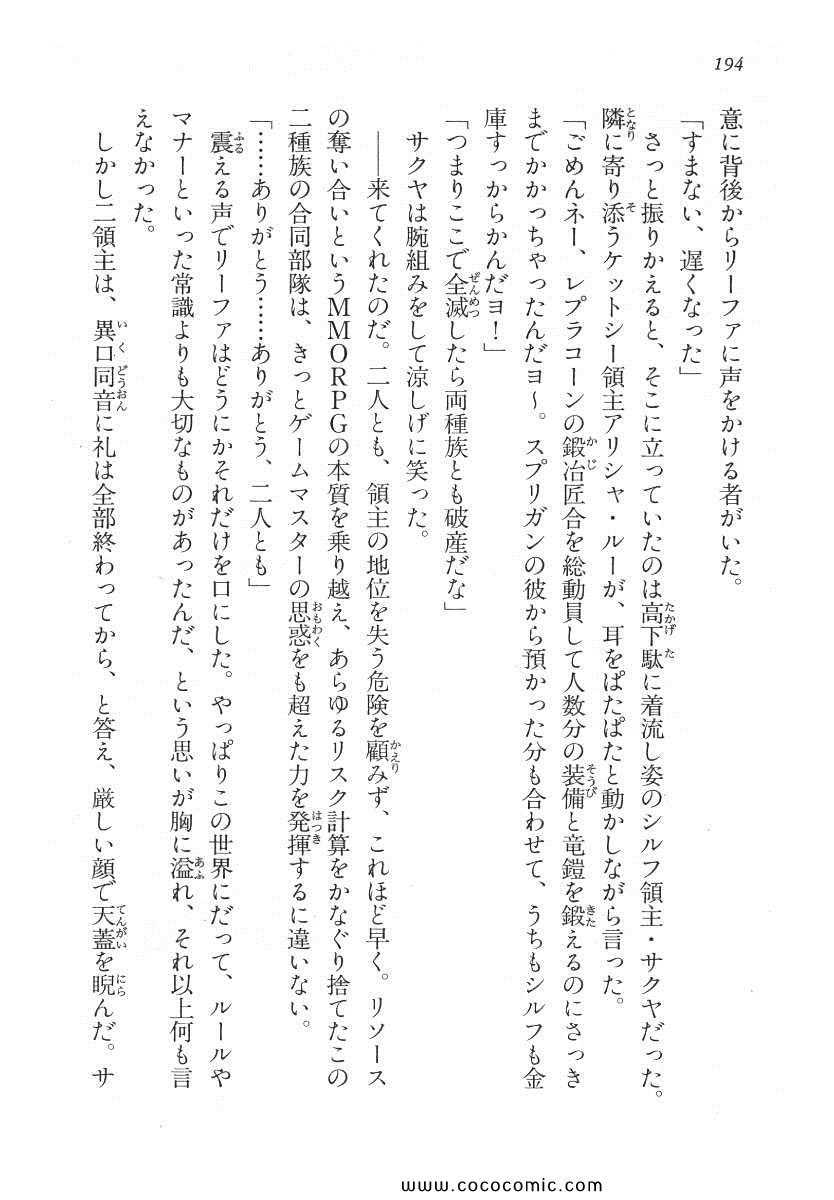 194
意に背後からリーファに声をかける者がいた。
「すまない、遅くなった」
さっと振りかえると、そこに立っていたのは高下駄に着流し姿のシルフ領主・サクヤだった。
隣に寄り添うケットシー領主アリシャ・ルーが、耳をぱたぱたと動かしながら言った。
「ごめんネー、レプラコーンの鍛冶匠合を総動員して人数分の装備と竜鎧を鍛えるのにさっき
までかかっちゃったんだヨ～。スプリガンの彼から預かった分も合わせて、うちもシルフも金
庫すっからかんだヨ！」
「つまりここで全滅したら両種族とも破産だな」
サクヤは腕組みをして涼しげに笑った。
――来てくれたのだ。二人とも、領主の地位を失う危険を顧みず、これほど早く。リソース
の奪い合いというＭＭＯＲＰＧの本質を乗り越え、あらゆるリスク計算をかなぐり捨てたこの
二種族の合同部隊は、きっとゲームマスターの思惑をも超えた力を発揮するに違いない。
「……ありがとう……ありがとう、二人とも」
震える声でリーファはどうにかそれだけを口にした。やっぱりこの世界にだって、ルールや
マナーといった常識よりも大切なものがあったんだ、という思いが胸に溢れ、それ以上何も言
えなかった。
しかし二領主は、異口同音に礼は全部終わってから、と答え、厳しい顔で天蓋を睨んだ。サ
www.cococomic.com